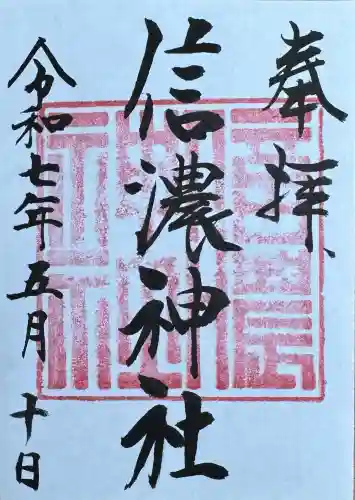 奉拝
信濃神社
令和七年五月十日